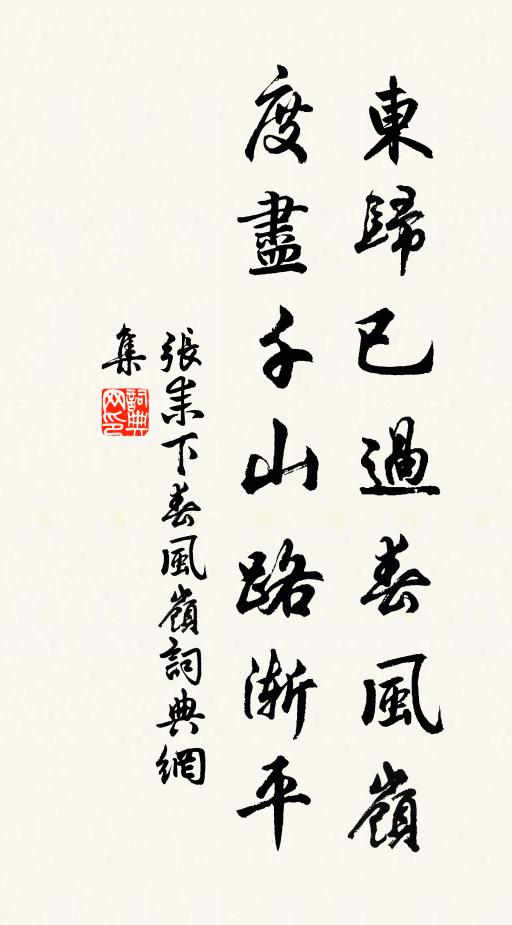 東歸已過春風嶺
度盡千山路漸平
張耒下春風嶺詞典網
集
詞典
网印